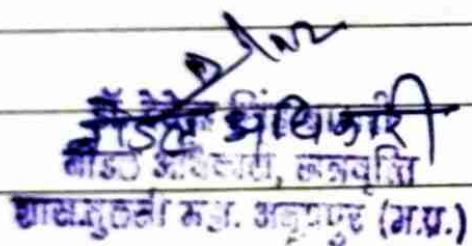 नोडल अधिकारी
नोडल अधिकारी, छात्रवृत्ति
शास. तुलसी महा. अनूपपुर (म.प्र.)